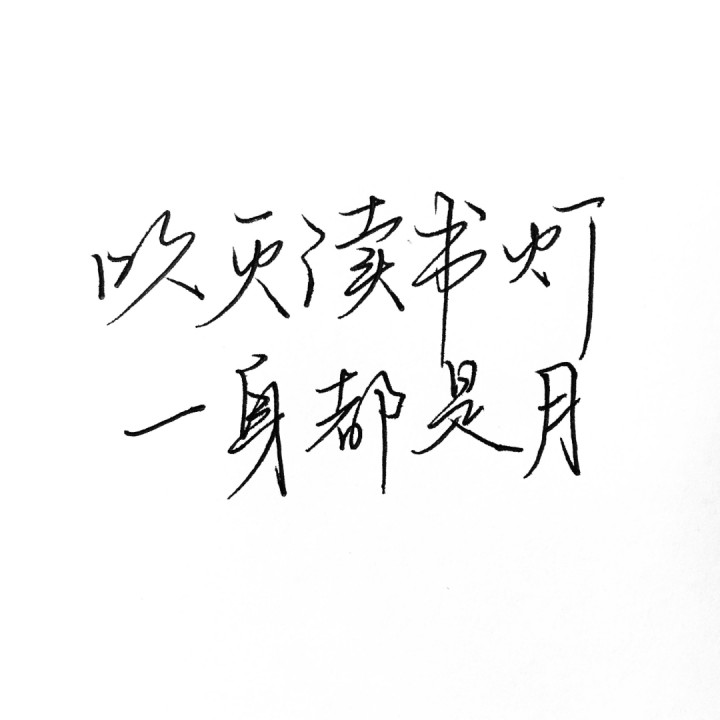 吹灭读书灯
一身都是月